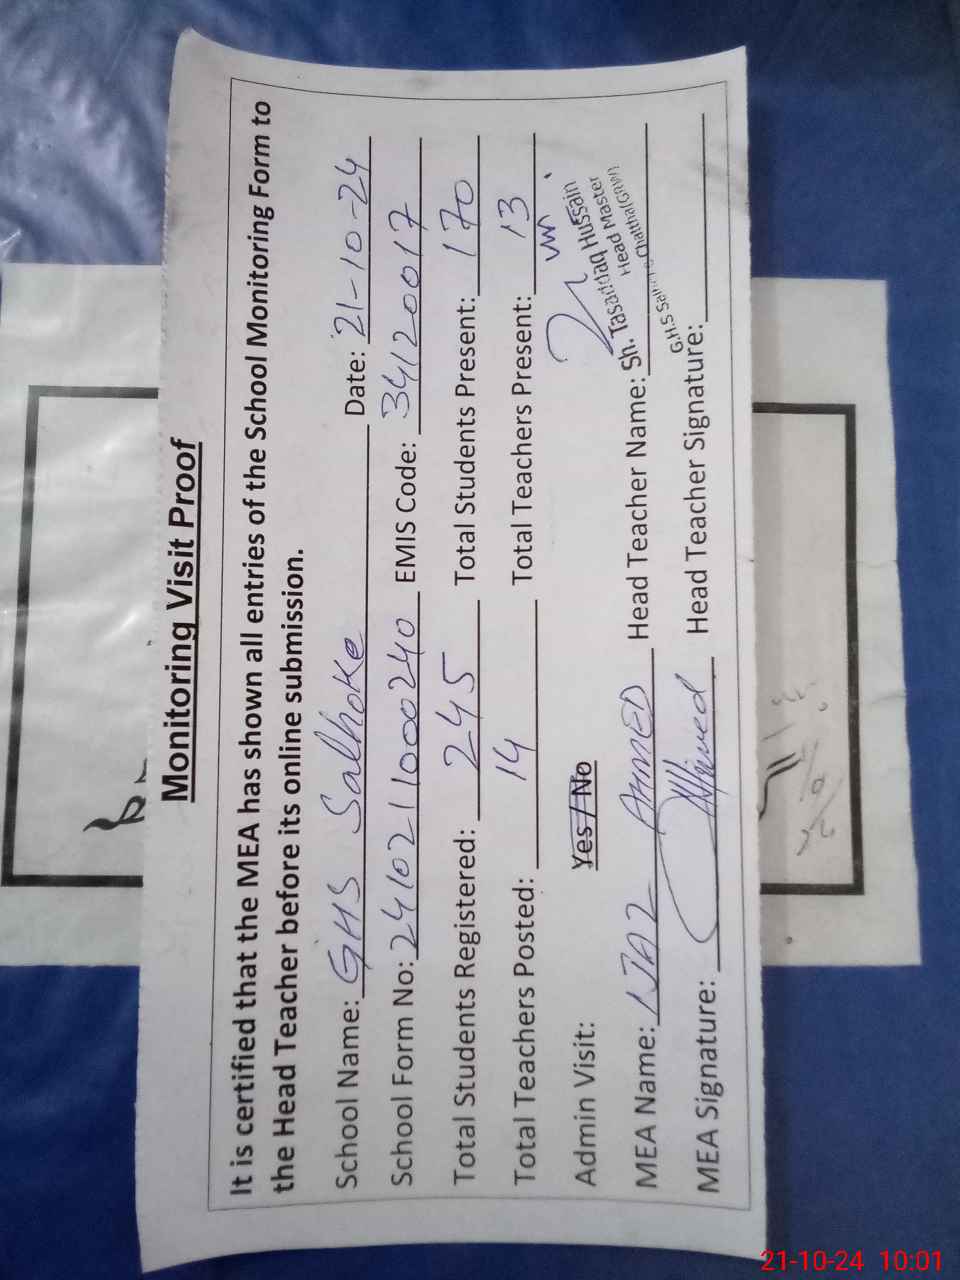 Monitoring Visit Proof
It is certified that the MEA has shown all entries of the School Monitoring Form to
the Head Teacher before its online submission.
School Name: GHS Salhoke Date: 21-10-24
School Form No: 241021100240 EMIS Code: 34120017
Total Students Registered: 245 Total Students Present: 170
Total Teachers Posted: 14 Total Teachers Present: 13
Admin Visit: Yes / No
MEA Name: IJAZ AHMED Head Teacher Name: Sh. Tasaddaq Hussain
Head Master
MEA Signature: Head Teacher Signature: G.H.S
21-10-24 10:01